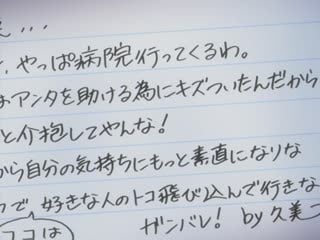 、やっぱ病院行ってくるわ。
アンタを助ける為にキズついたんだから
と介抱してやんな！
から自分の気持ちにもっと素直になりな
で好きな人のトコ飛び込んで行きな
ココは
ガンバレ！ by 久美